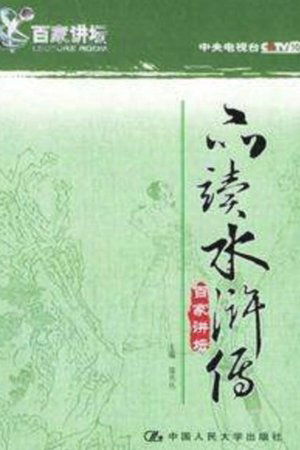 百家讲坛
LECTURE ROOM
中央电视台 CCTV10
品读水浒传
百家讲坛
主编
中国人民大学出版社